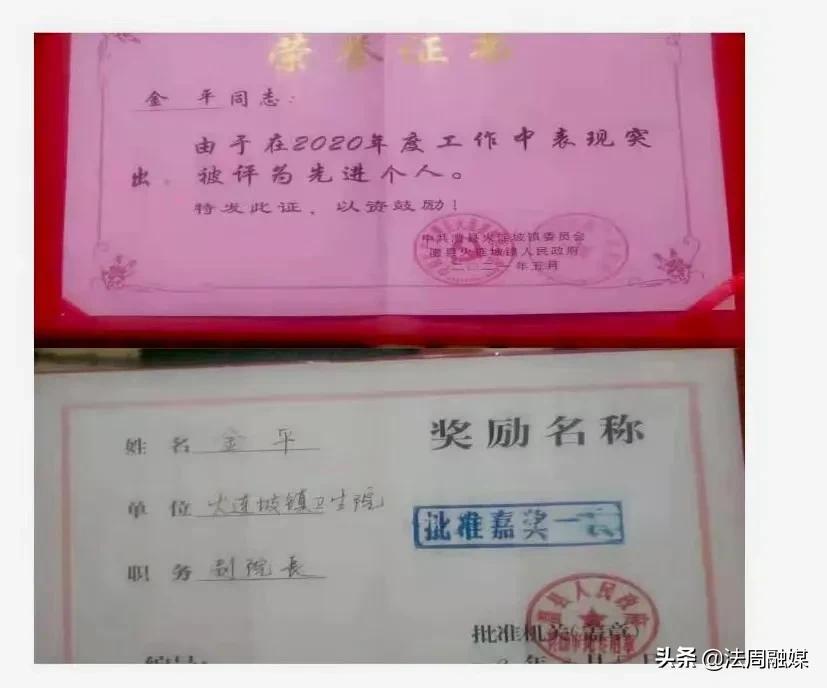 荣誉证书
金平同志：
由于在2020年度工作中表现突
出，被评为先进个人。
特发此证，以资鼓励！
中共澧县火连坡镇委员会
澧县火连坡镇人民政府
二〇二一年五月
姓名 金平
单位 火连坡镇卫生院
职务 副院长
奖励名称
批准嘉奖一次
澧县人民政府
批准机关(盖章)
编号:
头条 @法周融媒